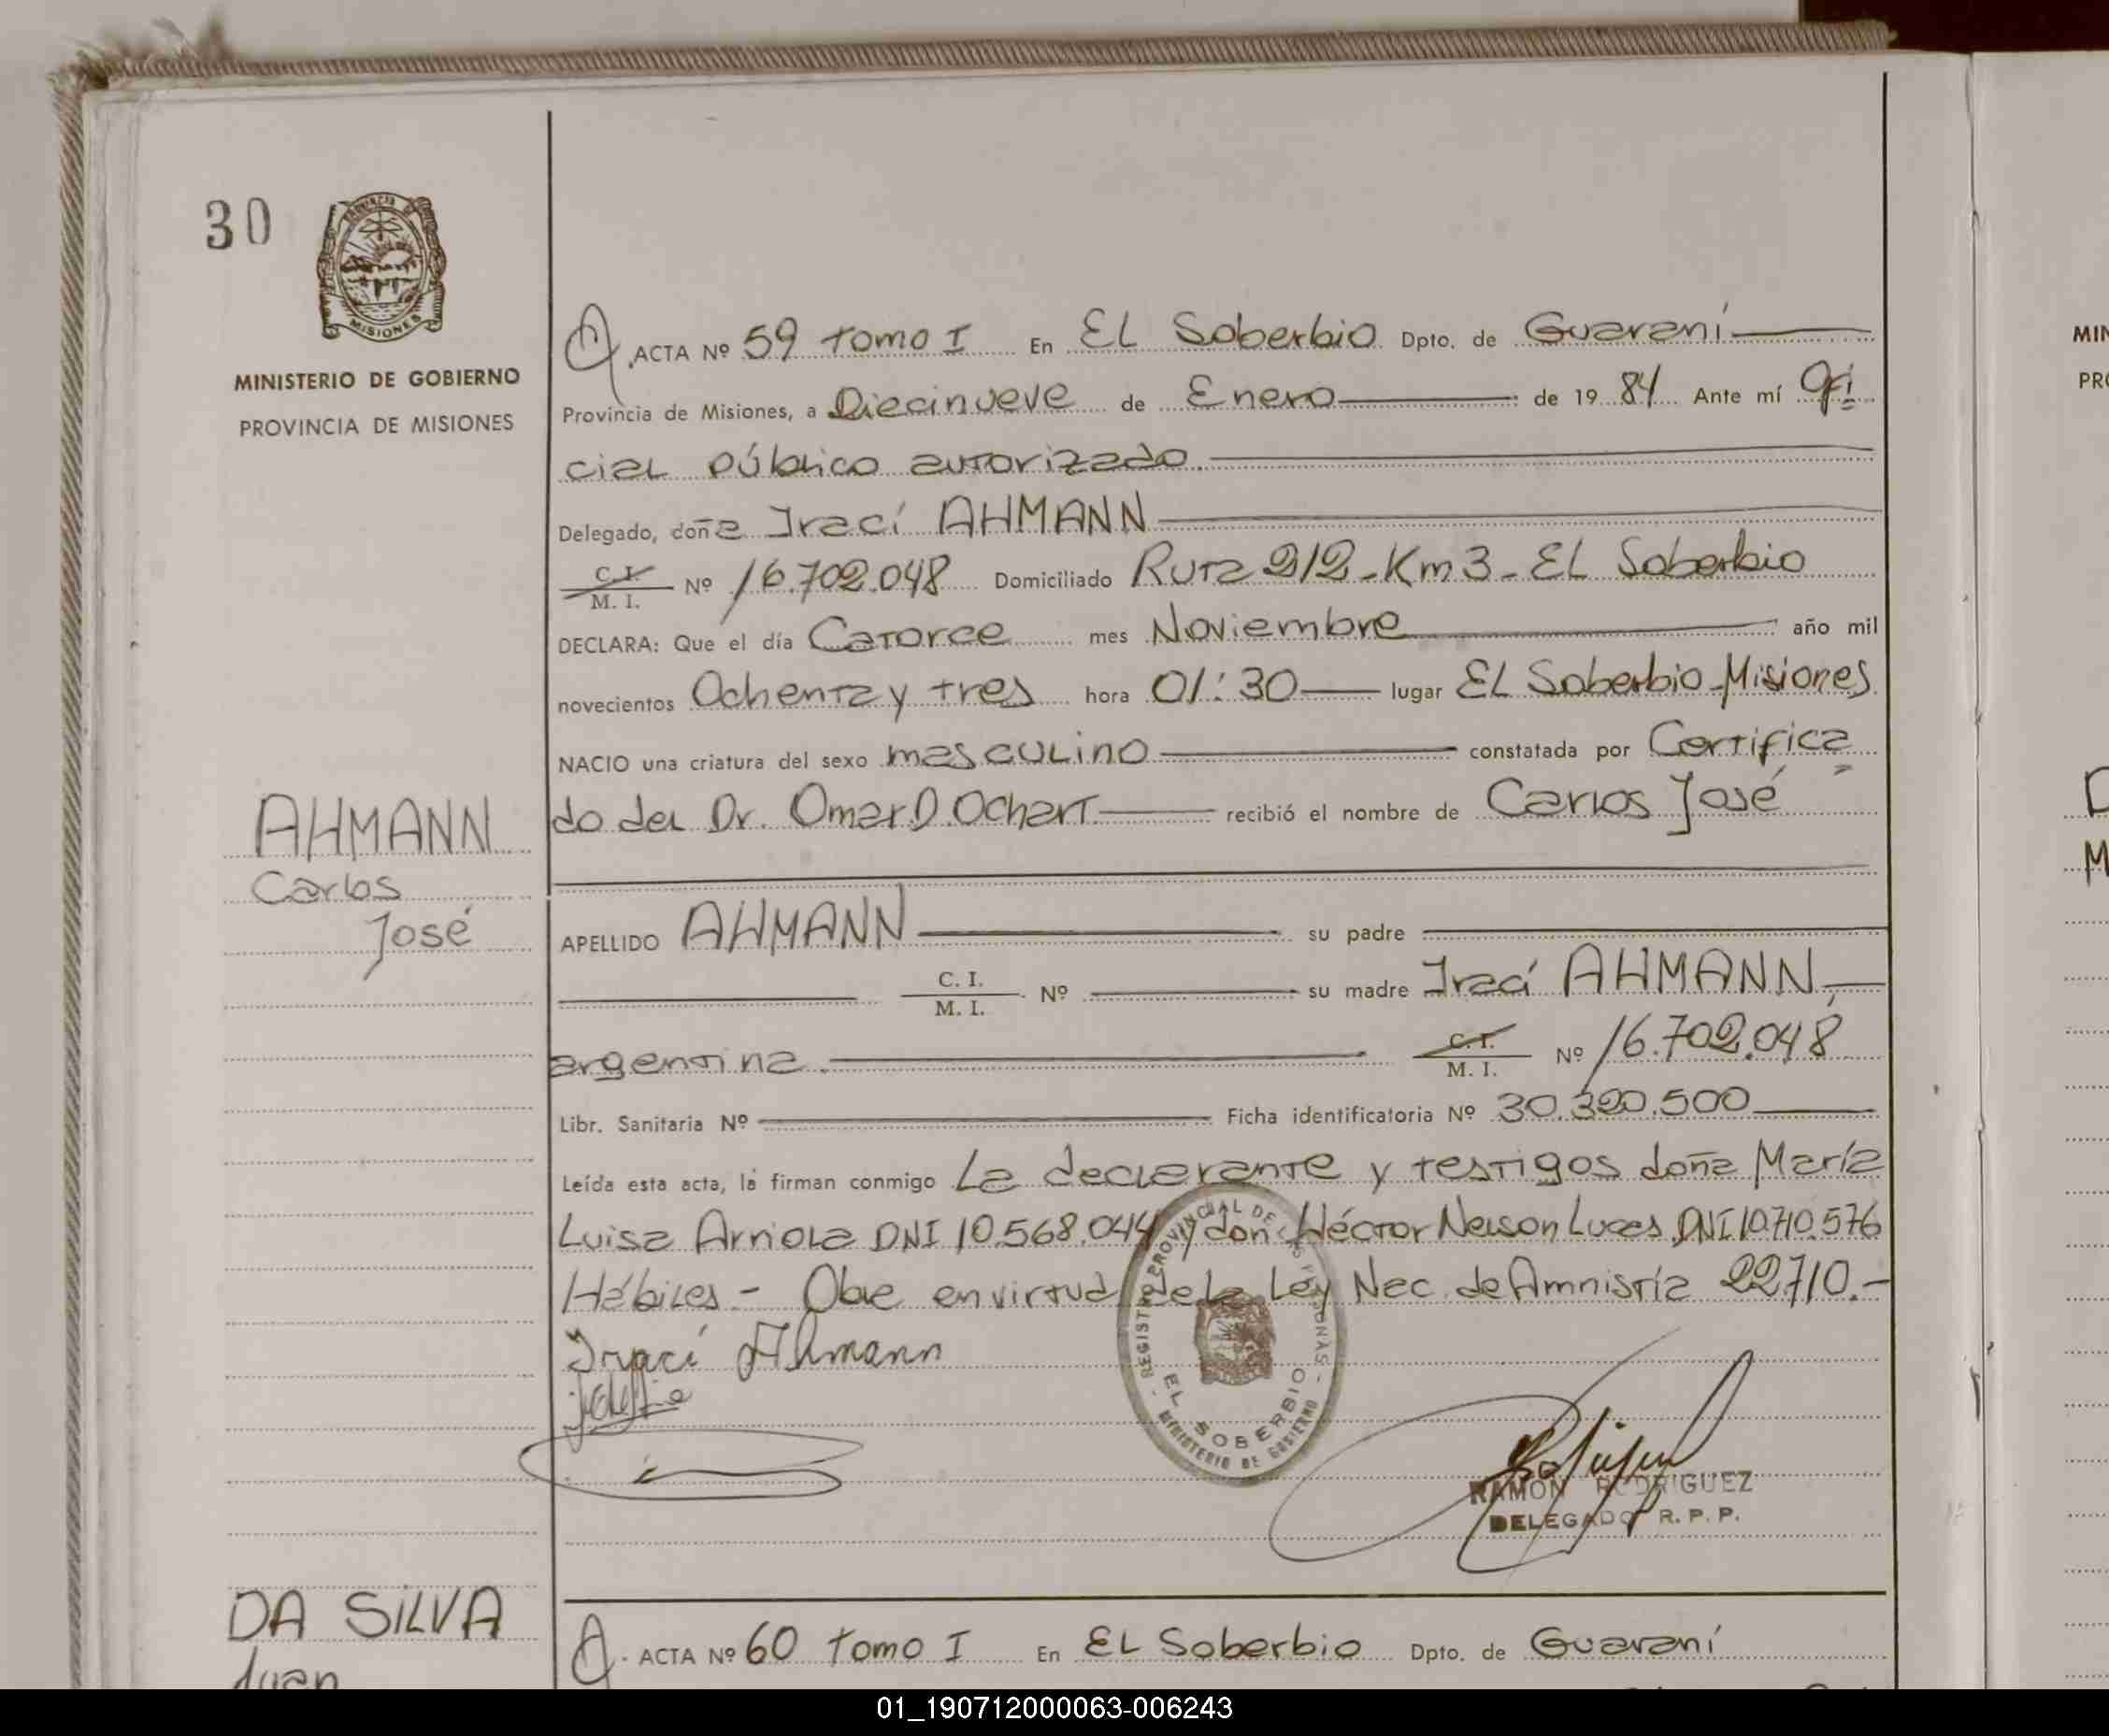 30
PROVINCIA DE
MISIONES
MINISTERIO DE GOBIERNO
PROVINCIA DE MISIONES
ACTA Nº 59 tomo I En EL Soberbio Dpto. de Guaraní
Provincia de Misiones, a Diecinueve de Enero de 19 84 Ante mí Ofi
cial público autorizado.
Delegado, doña Iraci AHMANN
C. I. / M. I. Nº 16.702.048 Domiciliado Ruta 212-Km 3-EL Soberbio
DECLARA: Que el día Catorce mes Noviembre año mil
novecientos Ochenta y tres hora 01:30 lugar EL Soberbio-Misiones
NACIO una criatura del sexo masculino constatada por Certifica
do del Dr. Omar D. Ochart recibió el nombre de Carlos José
AHMANN
Carlos
José
APELLIDO AHMANN su padre
C. I. / M. I. Nº su madre Iraci AHMANN,
argentina. C. I. / M. I. Nº 16.702.048
Libr. Sanitaria Nº Ficha identificatoria Nº 30.320.500
Leída esta acta, la firman conmigo La declarante y testigos doña María
Luisa Arriola DNI 10.568.044 y don Héctor Nelson Luces DNI 10.710.576
Hábiles.- Obre en virtud de la Ley Nac. de Amnistía 22.710.-
Iraci Ahmann
REGISTRO PROVINCIAL DE LAS PERSONAS
EL SOBERBIO
MINISTERIO DE GOBIERNO
RAMON RODRIGUEZ
DELEGADO R. P. P.
DA SILVA
Juan
ACTA Nº 60 tomo I En EL Soberbio Dpto. de Guaraní
MIN
PRO
D
M
01_190712000063-006243